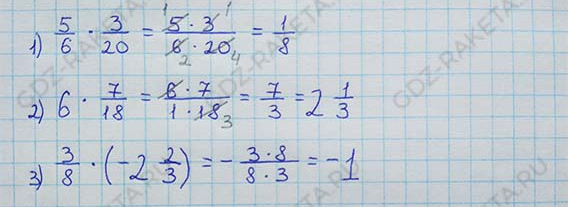 1) 5/6 · 3/20 = 5 · 3 / 6 · 20 = 1/8
2) 6 · 7/18 = 6 · 7 / 1 · 18 = 7/3 = 2 1/3
3) 3/8 · (-2 2/3) = - 3 · 8 / 8 · 3 = -1
GDZ-RAKETA.RU